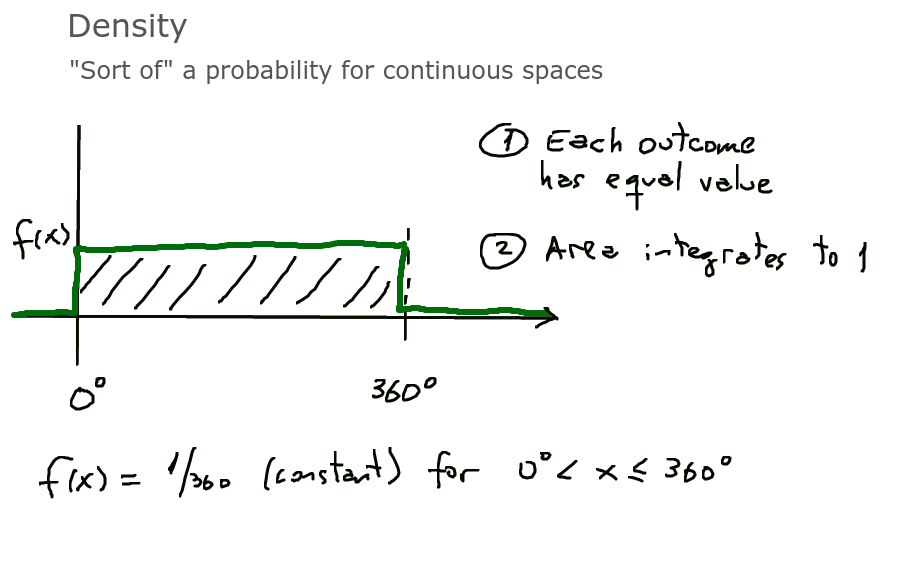 Density
"Sort of" a probability for continuous spaces
① Each outcome
has equal value
f(x)
② Area integrates to 1
0° 360°
f(x) = 1/360 (constant) for 0° < x ≤ 360°